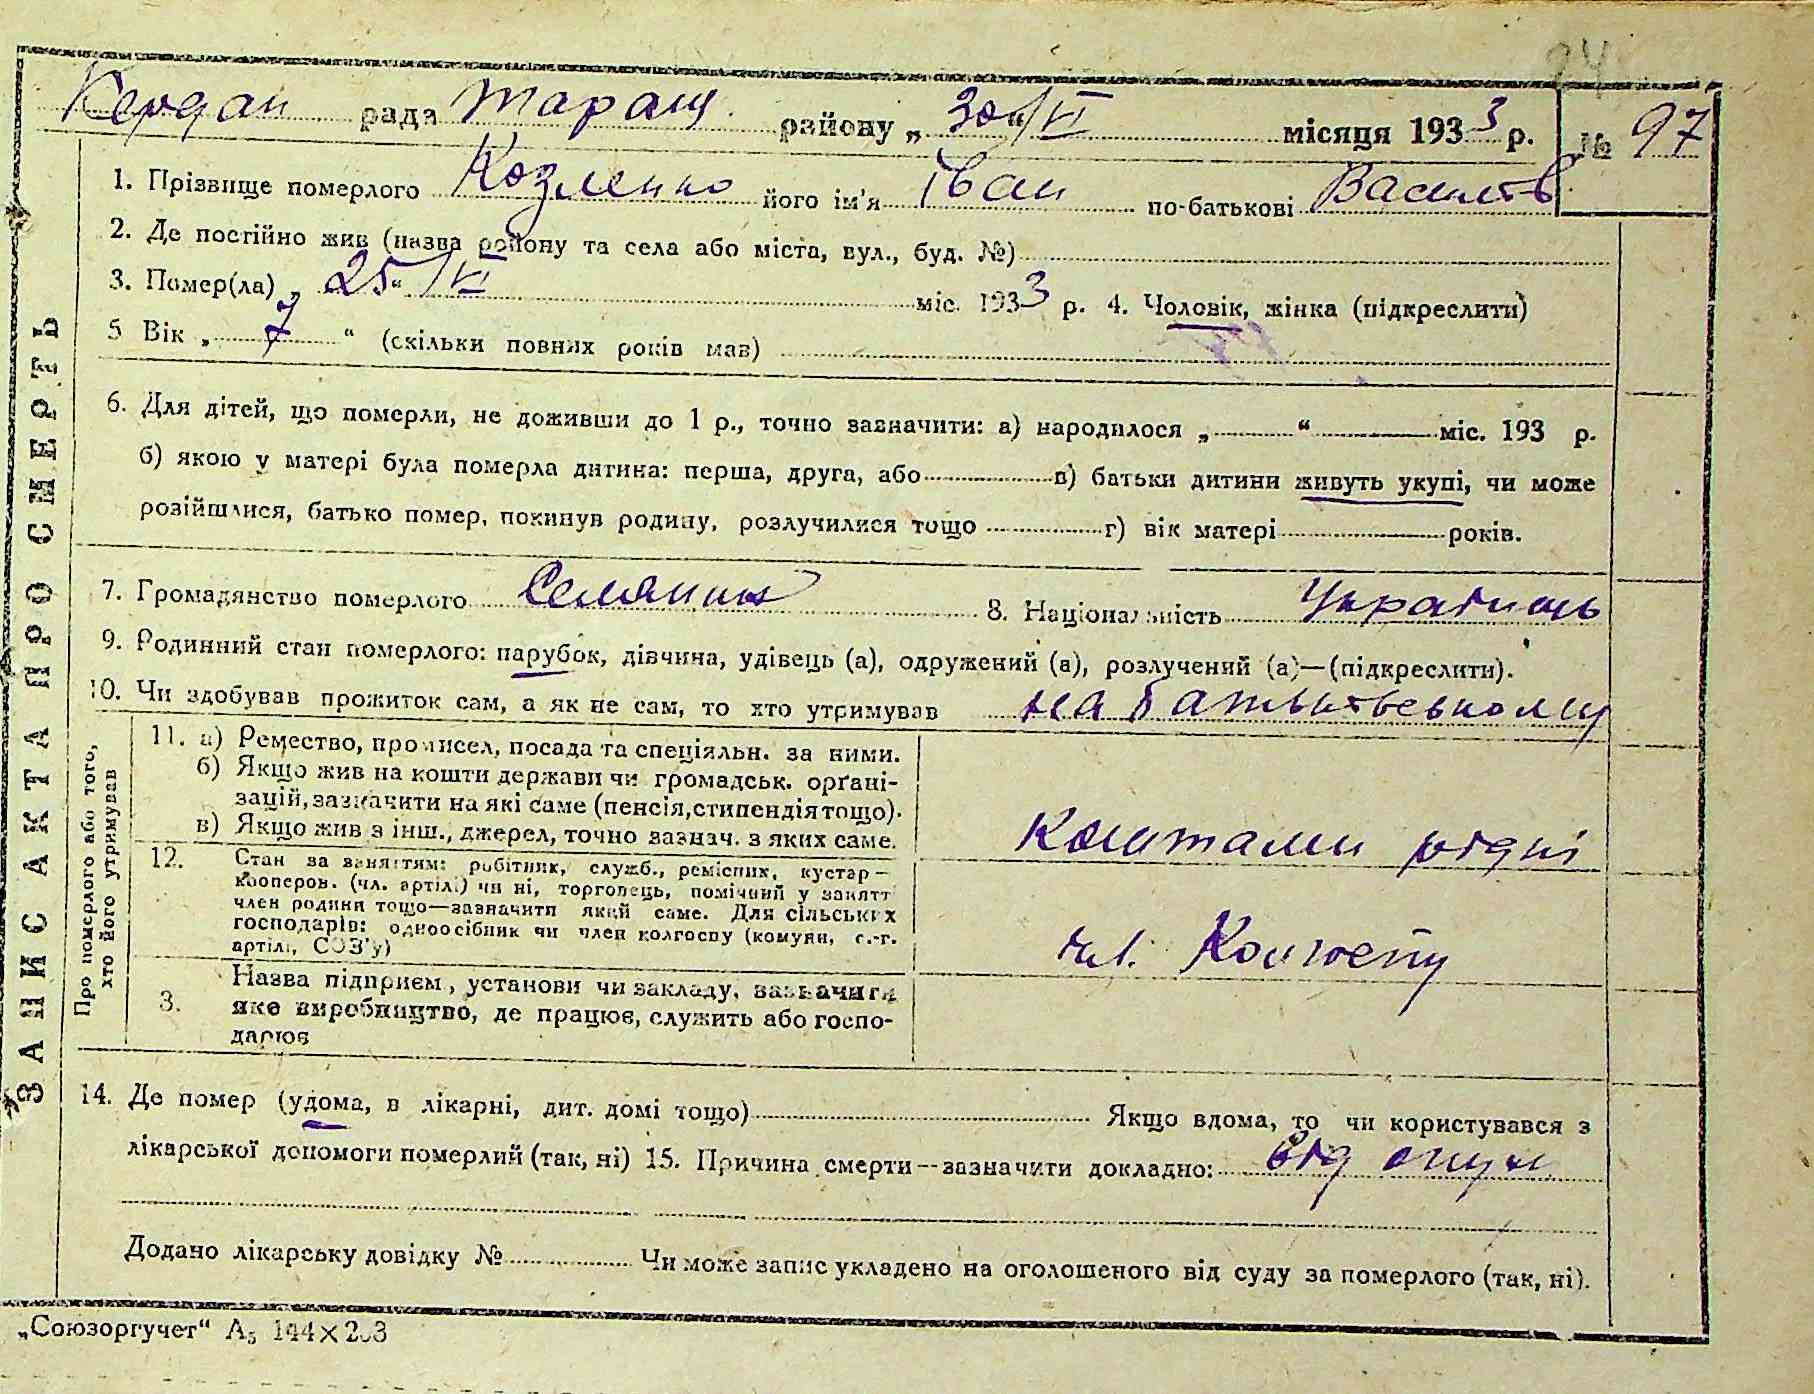 94
Кердан рада Таращ. району „ 30 “ VI місяця 1933 р. № 97
1. Прізвище померлого Козленко його ім'я Іван по-батькові Васильов
2. Де постійно жив (назва району та села або міста, вул., буд. №)
3. Помер(ла) „ 25 “ VI міс. 1933 р. 4. Чоловік, жінка (підкреслити)
5 Вік „ 7 “ (скільки повних років мав)
6. Для дітей, що померли, не доживши до 1 р., точно зазначити: а) народилося „ “ міс. 193 р.
б) якою у матері була померла дитина: перша, друга, або в) батьки дитини живуть укупі, чи може
розійшлися, батько помер, покинув родину, розлучилися тощо г) вік матері років.
7. Громадянство померлого Селянин 8. Національність Українець
9. Родинний стан померлого: парубок, дівчина, удівець (а), одружений (а), розлучений (а)—(підкреслити).
10. Чи здобував прожиток сам, а як не сам, то хто утримував на батьківському
11. а) Ремество, промисел, посада та спеціяльн. за ними.
б) Якщо жив на кошти держави чи громадськ. орґані-
зацій, зазначити на які саме (пенсія, стипендія тощо).
в) Якщо жив з інш., джерел, точно зазнач. з яких саме.
коштами рідні
12. Стан за заняттям: робітник, служб., ремісник, кустар—
кооперов. (чл. артілі) чи ні, торговець, помічний у занятті
член родини тощо—зазначити який саме. Для сільських
господарів: одноосібник чи член колгоспу (комуни, с.-г.
артілі, СОЗ'у)
чл. Колгоспу
3. Назва підприєм, установи чи закладу, зазначити
яке виробництво, де працює, служить або госпо-
дарює
14. Де помер (удома, в лікарні, дит. домі тощо) Якщо вдома, то чи користувався з
лікарської допомоги померлий (так, ні) 15. Причина смерти—зазначити докладно: від опух
Додано лікарську довідку № Чи може запис укладено на оголошеного від суду за померлого (так, ні).
„Союзоргучет“ А5 144×203
ЗАПИС АКТА ПРО СМЕРТЬ
Про померлого або того,
хто його утримував